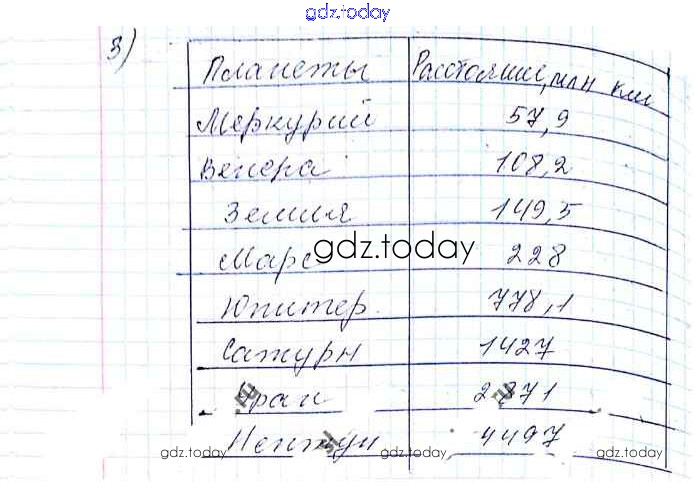 gdz.today
3)
Планеты Расстояние, млн км
Меркурий 57,9
Венера 108,2
Земля 149,5
Марс 228
gdz.today
Юпитер 778,1
Сатурн 1427
Уран 2 871
Нептун 4497
gdz.today gdz.today gdz.today